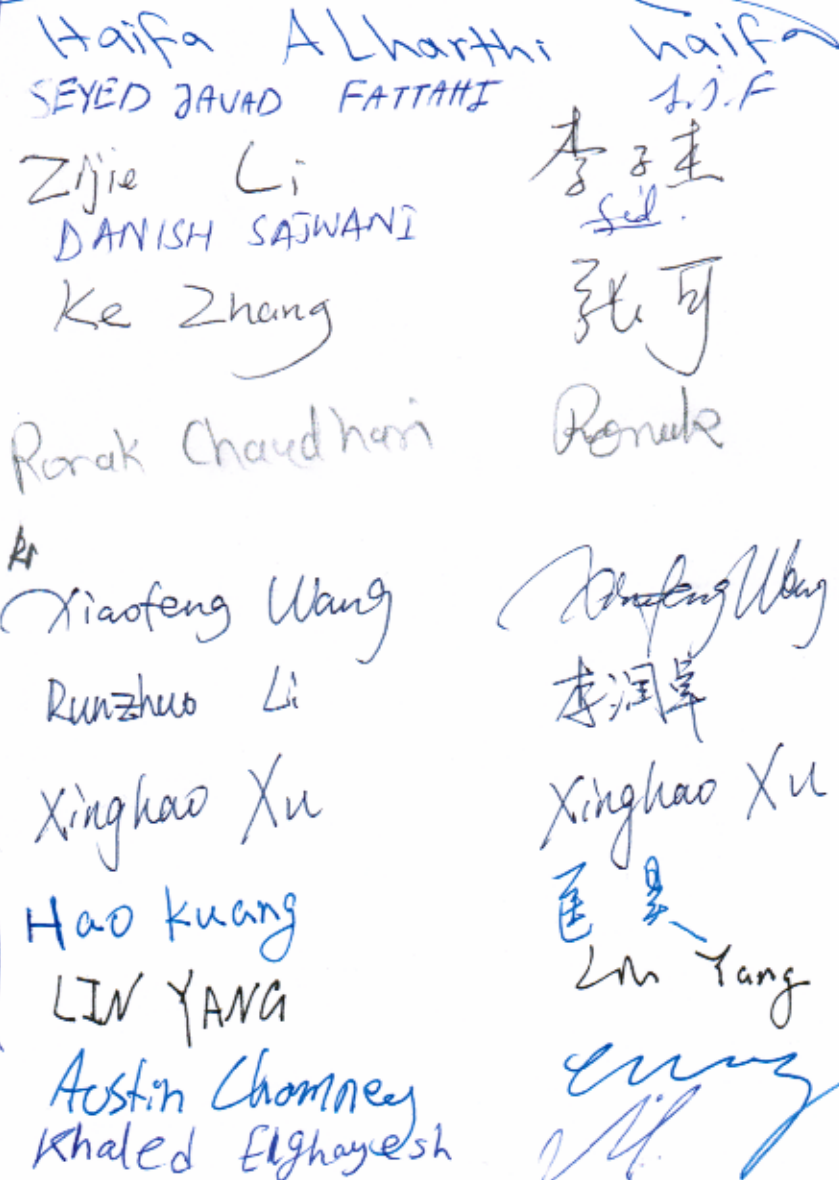 Haifa ALharthi haifa
SEYED JAVAD FATTAHI S.J.F
Zijie Li 李子杰
DANISH SAJWANI
Ke Zhang 张可
Ronak Chaudhari Ronak
Xiaofeng Wang Xiaofeng Wang
Runzhuo Li 李润卓
Xinghao Xu Xinghao Xu
Hao Kuang 匡昊
LIN YANG Lin Yang
Austin Chomney
Khaled Elghayesh